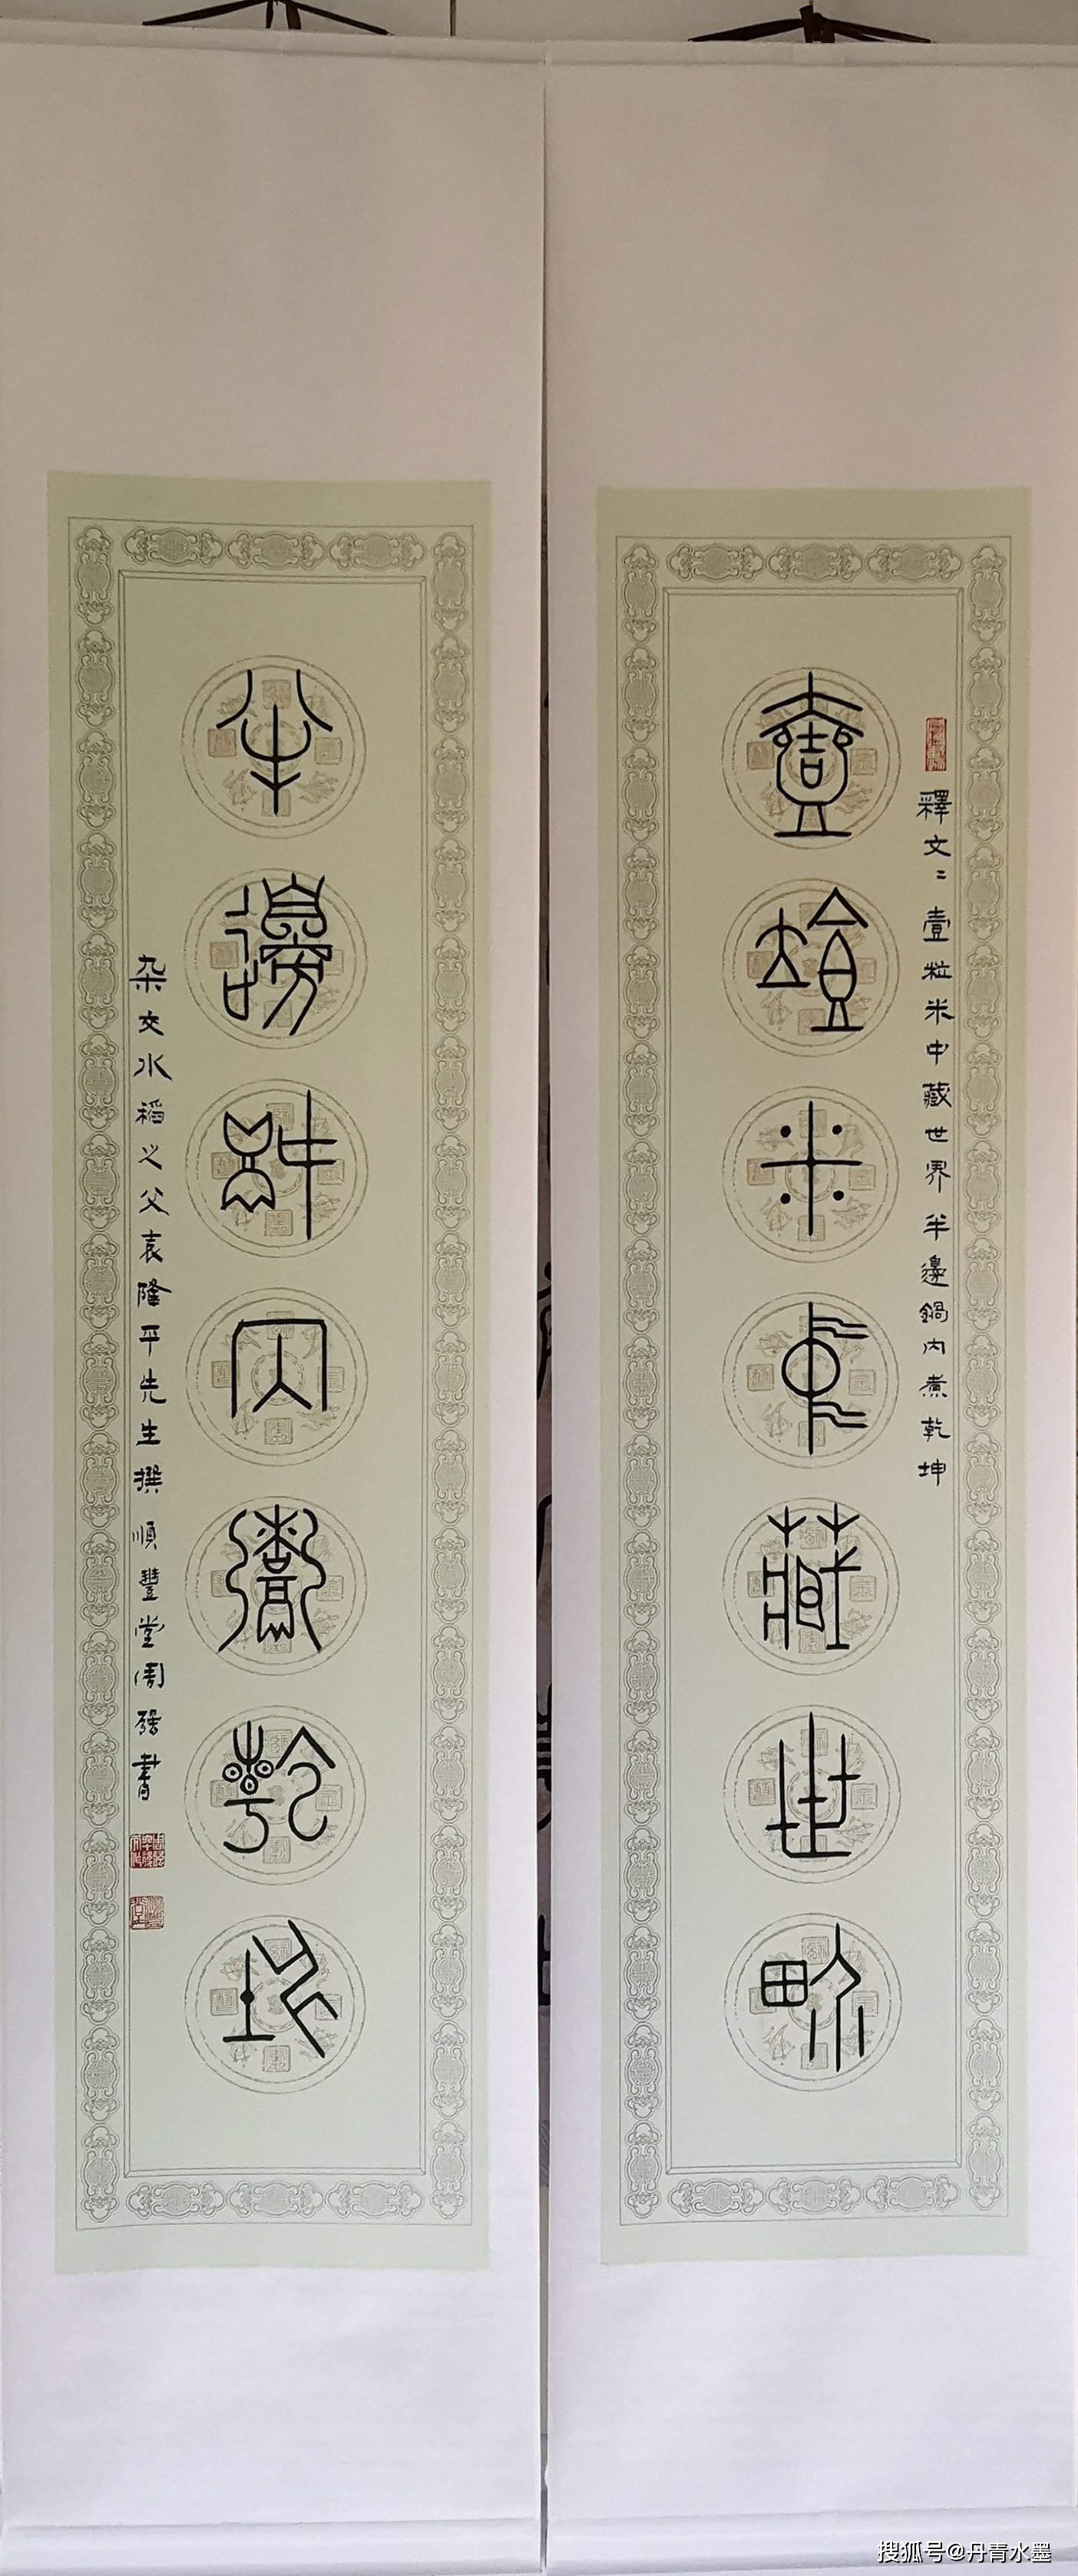 壹粒米中藏世界
釋文：壹粒米中藏世界 半邊鍋内煮乾坤
半邊鍋内煮乾坤
杂交水稻之父袁隆平先生撰 順豐堂周强書
搜狐号@丹青水墨